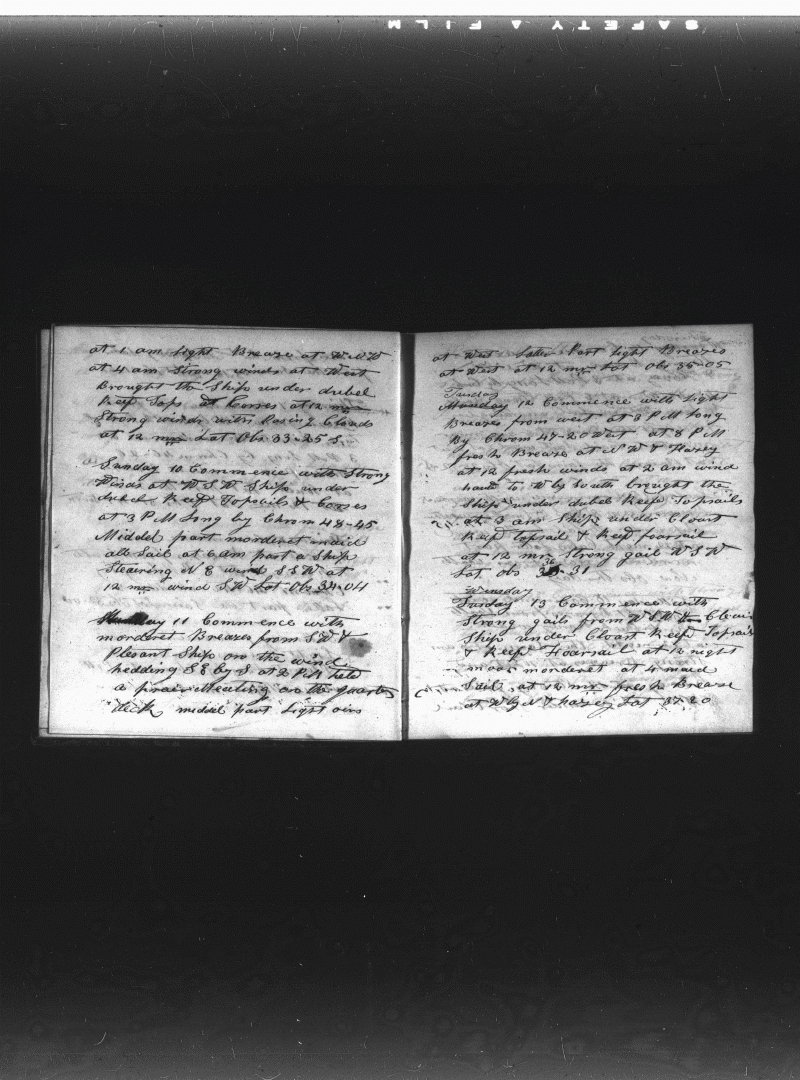 SAFETY A FILM
at 1 am light Breaze at WNW
at 4 am Strong winds at West
Brought the Ship under dubel
Reef Tops at Corses at 12 mr
Strong winds with Pasing Clouds
at 12 mr Lat Obs 33-25 S,
Sunday 10 Commence with Strong
Winds at WSW Ship under
dubel Reef Topsails & Corses
at 3 PM Long by Chrom 48-45
Middel part morderet maid
all Sail at 6 am past a Ship
Stearing N E wind SSW at
12 mr wind SW Lat Obs 34-04
11 Commence with
morderet Breazes from SW &
Plesant Ship on the wind
hedding SE by S at 2 P.M held
a prair Meeting on the quarter
deck middel part Light airs
at West later Part light Breazes
at West at 12 mr Lat Obs 35-05
Tusday
Monday 12 Commence with light
Breazes from west at 3 PM Long
By Chrom 47-20 West at 8 PM
fresh Breazes at NW & Hazey
at 12 fresh winds at 2 am wind
hald to W by South brought the
Ship under dubel Reef Topsails
at 3 am Ship under Cloast
Reef topsail & Reef foarsail
at 12 mr Strong gail WSW
36
Lat Obs 31
Winsday
Tusday 13 Commence with
Strong gails from WSW Clear
Ship under Cloast Reef Topsails
& Reef Foarsail at 12 night
moar morderet at 4 maid
Sail, at 12 mr fresh Breaze
at W by N & hazey Lat 37 20